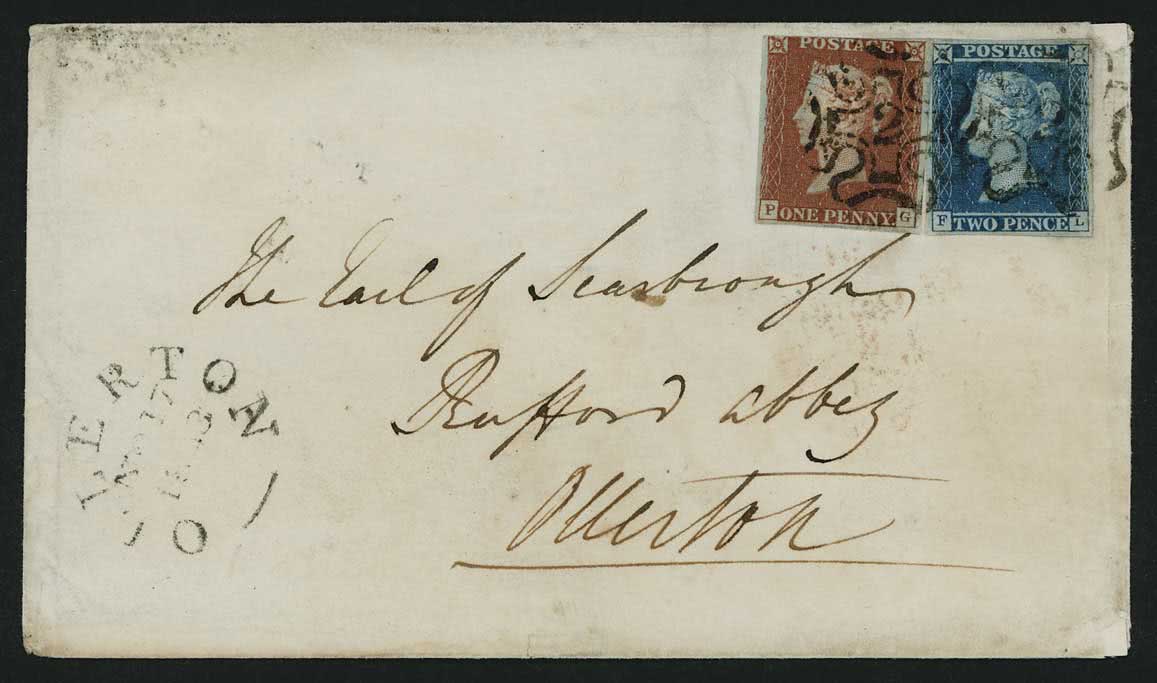 POSTAGE POSTAGE
2
P ONE PENNY. G F TWO PENCE L
The Earl of Scarbrough
Rufford abbey
Ollerton